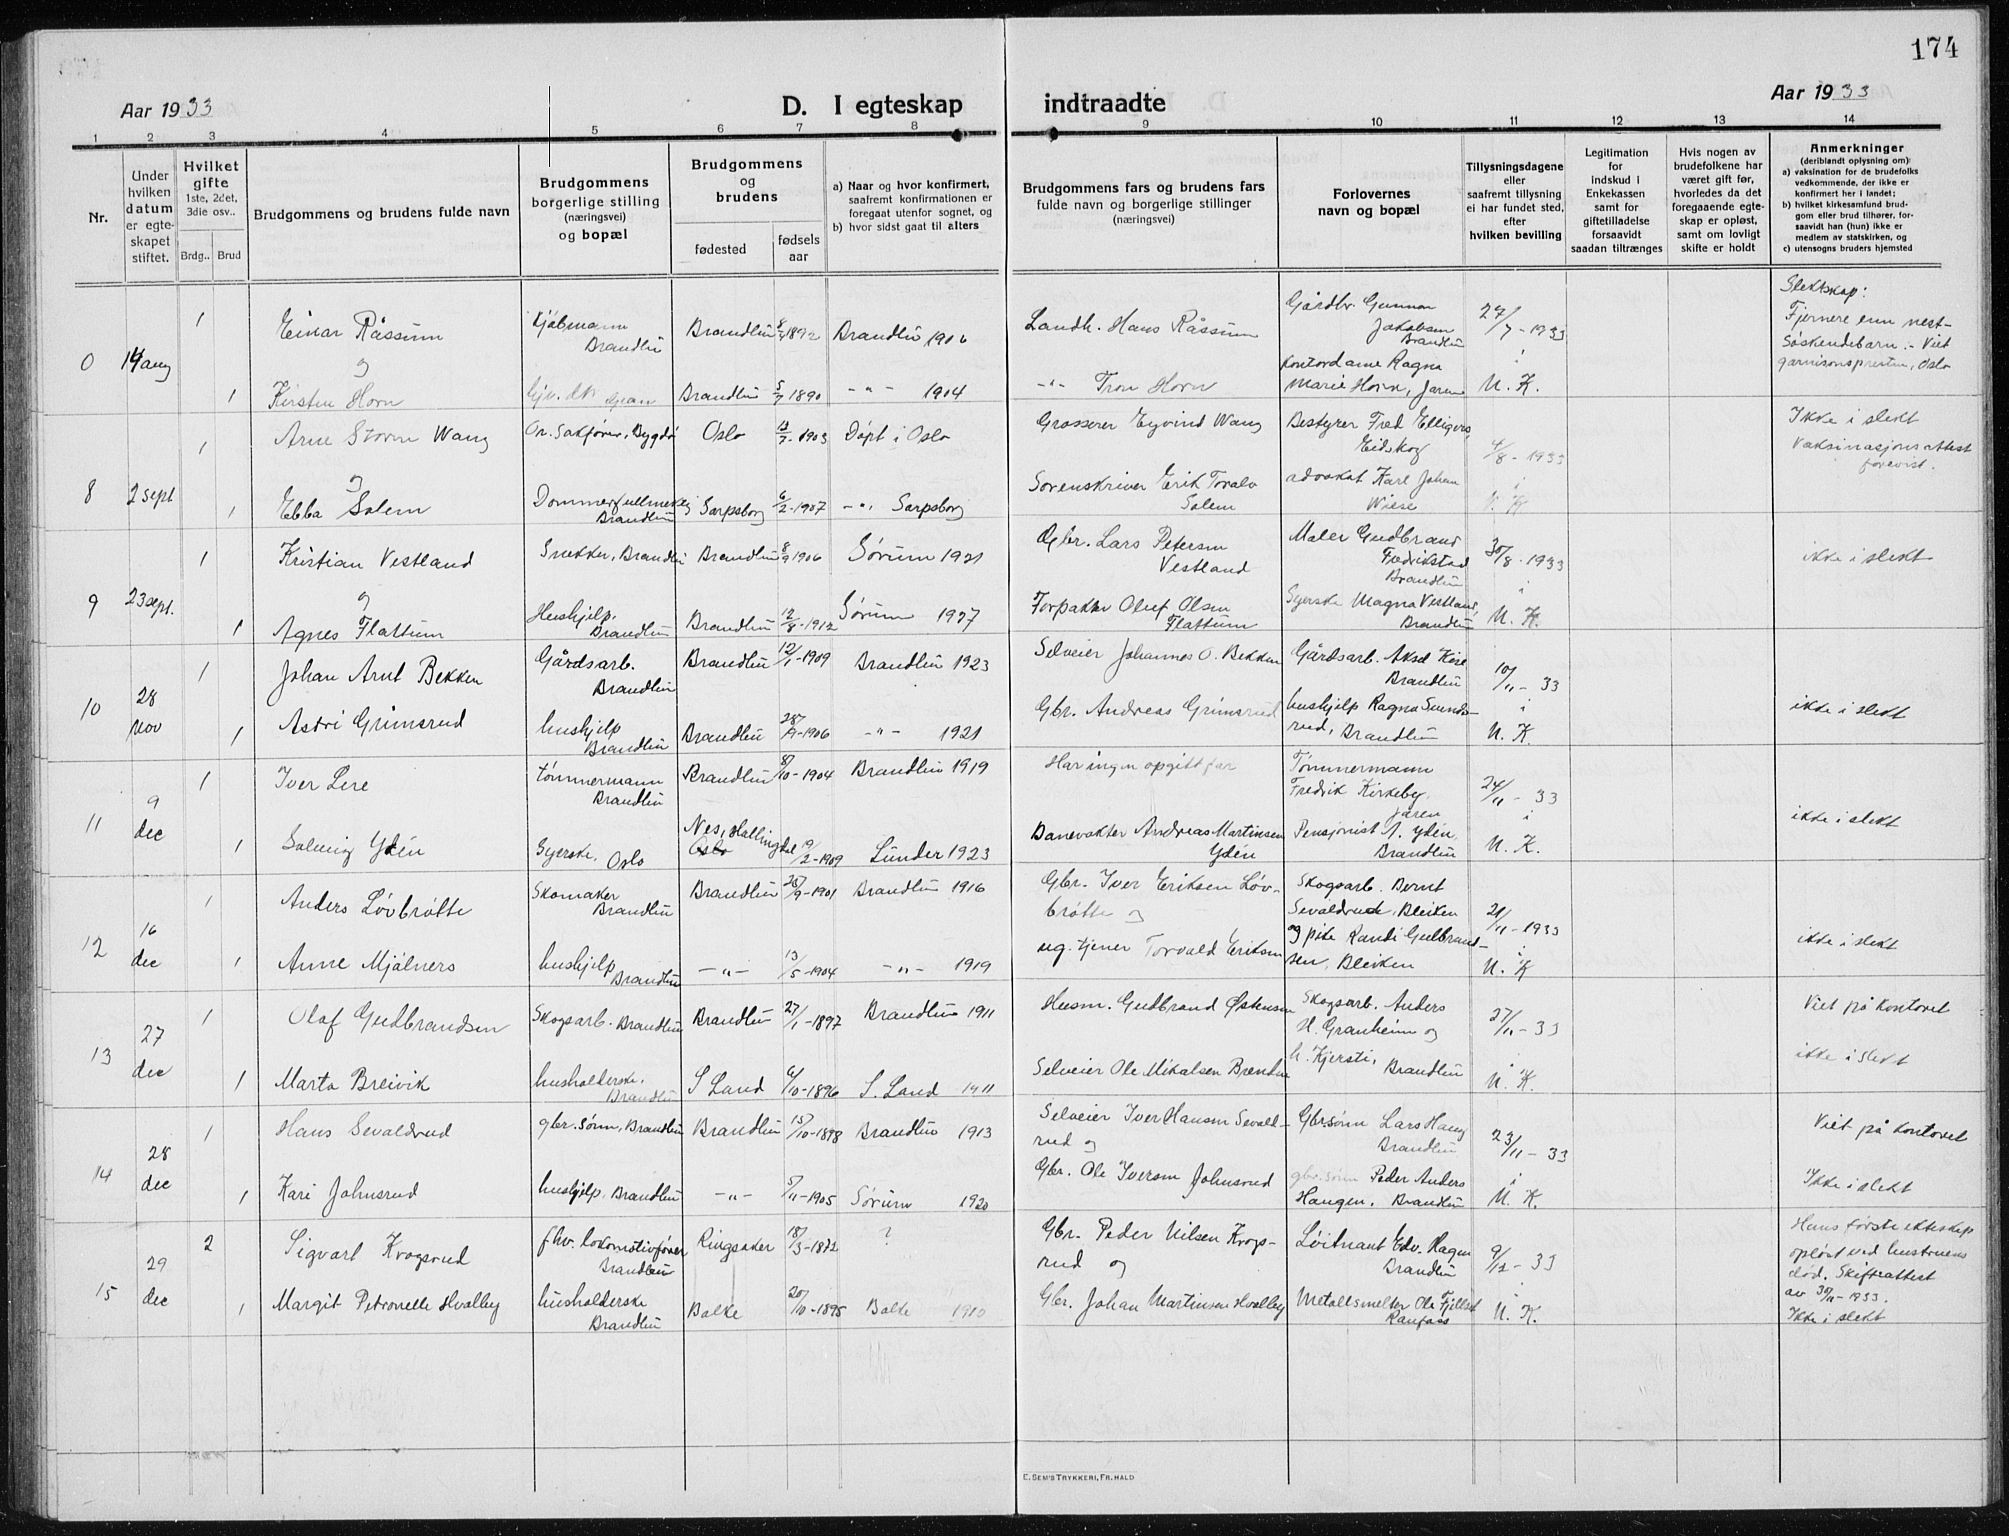 174
Aar 1933
D. I egteskap indtraadte
Aar 1933
1 2 3 4 5 6 7 8 9 10 11 12 13 14
Nr.
Under hvilken datum er egteskapet stiftet.
Hvilket gifte 1ste, 2det, 3die osv..
Brdg.. Brud
Brudgommens og brudens fulde navn
Brudgommens borgerlige stilling (næringsvei) og bopæl
Brudgommens og brudens
fødested
fødsels aar
a) Naar og hvor konfirmert, saafremt konfirmationen er foregaat utenfor sognet, og
b) hvor sidst gaat til alters
Brudgommens fars og brudens fars fulde navn og borgerlige stillinger (næringsvei)
Forlovernes navn og bopæl
Tillysningsdagene eller saafremt tillysning ei har fundet sted, efter hvilken bevilling
Legitimation for indskud i Enkekassen samt for giftetilladelse forsaavidt saadan tiltrænges
Hvis nogen av brudefolkene har været gift før, hvorledes da det foregaaende egteskap er opløst, samt om lovligt skifte er holdt
Anmerkninger (deriblandt oplysning om)
a) vaksination for de brudefolks vedkommende, der ikke er konfirmert her i landet;
b) hvilket kirkesamfund brudgom eller brud tilhører, forsaavidt han (hun) ikke er medlem av statskirken, og
c) utensogns bruders hjemsted
0 14 aug
1 Einar Råssum Kjøbmann Brandbu Brandbu 1892 Brandbu 1906 Landh. Hans Råssum Gårdbr. Gunnar Jakobsen Brandbu 24/7-1933
og
1 Kirsten Horn Brandbu 1890 -"- 1904 -"- Tron Horn Kontordame Ragna Marie Horn, Jaren i U. K.
Slektskap: Fjernere enn nest-søskendebarn. - Viet garnisonspresten, Oslo
8 2 sept
1 Arne Storm Wang Or. Sakfører, Bygdø Oslo 1903 Døpt i Oslo Grosserer Eyvind Wang Bestyrer Fred Elligers, Eidskog 4/8-1933
og
1 Ebba Solem Dommerfullmektig Brandbu Sarpsborg 6/2-1907 -"- Sarpsborg Sorenskriver Erik Toralv Solem advokat Karl Johan Wiese i U. K
Ikke i slekt
Vaksinasjonsattest forevist.
9 23 sept.
1 Kristian Vestland Snekker, Brandbu Brandbu 8/9 1906 Sørum 1921 Gbr. Lars Petersen Vestland Maler Gudbrand Fredrikstad Brandbu 30/8-1933
og
1 Agnes Flattum Hushjelp, Brandbu Brandbu 12/8-1912 Sørum 1927 Forpakter Oluf Olsen Flattum Syerske Magna Vestland, Brandbu i U. K.
ikke i slekt
10 28 nov
1 Johan Arnt Bekken Gårdsarb. Brandbu Brandbu 12/1-1909 Brandbu 1923 Selveier Johannes O. Bekken Gårdsarb. Aksel Brandbu 10/11-33
1 Astri Grimsrud hushjelp Brandbu Brandbu 28/9-1906 -"- 1921 Gbr. Andreas Grimsrud hushjelp Ragna Svends-rud, Brandbu i U. K.
ikke i slekt
11 9 dec
1 Iver Lere tømmermann Brandbu Brandbu 8/10-1904 Brandbu 1919 Har ingen opgitt far Tømmermann Fredrik Kirkeby, Jaren 24/11-33
1 Solveig Ydén Syerske, Oslo Nes, Hallingdal Oslo 19/2-1909 Lunder 1923 Banevokter Andreas Martinsen Ydén Pensjonist A. Ydén, Brandbu i U. K.
ikke i slekt
12 16 dec
1 Anders Løvbrøtte Skomaker Brandbu Brandbu 28/9-1901 Brandbu 1916 Gbr. Iver Eriksen Løv-brøtte og Skogsarb. Bernt Sevaldrud, Bleiken 21/11-1933
1 Anne Mjølners hushjelp Brandbu -"- 13/5-1904 -"- 1919 ug. tjener Torvald Eriksen og pike Randi Gudbrand-sen, Bleiken i U. K
ikke i slekt
13 27 dec
1 Olaf Gudbrandsen Skogsarb. Brandbu Brandbu 27/1-1897 Brandbu 1911 Husm. Gudbrand Østensen Skogsarb. Anders H. Granheim og 27/11-33
1 Marta Breivik husholderske, Brandbu S Land 6/10-1896 S. Land 1911 Selveier Ole Mikalsen h. Kjersti, Brandbu i U. K.
Viet på kontoret
ikke i slekt
14 28 dec
1 Hans Sevaldrud gbr. sønn, Brandbu Brandbu 15/10-1898 Brandbu 1913 Selveier Iver Hansen Sevald-rud og Gbr.sønn Lars Haug Brandbu 23/11-33
1 Kari Johnsrud hushjelp, Brandbu -"- 5/11-1905 Sørum 1920 Gbr. Ole Iversen Johnsrud gbr. sønn Peder Anders Haugen, Brandbu i U. K.
Viet på kontoret
Ikke i slekt
15 29 dec
2 Sigvart Krogsrud fhv. lokomotivfører Brandbu Ringsaker 18/3-1872 ? Gbr. Peder Nilsen Krogs-rud og Løitnant Edv. Hagen Brandbu 9/12-33
1 Margit Petronelle Hvalby husholderske Brandbu Balke 20/10-1895 Balke 1910 Gbr. Johan Martinsen Hvalby Metallsmelter Ole Fjellset Raufoss i U. K.
Hans første ekteskap opløst ved hustruens død. Skifteattest av 30/11-1933.
Ikke i slekt
E. SEM'S TRYKKERI, FR. HALD